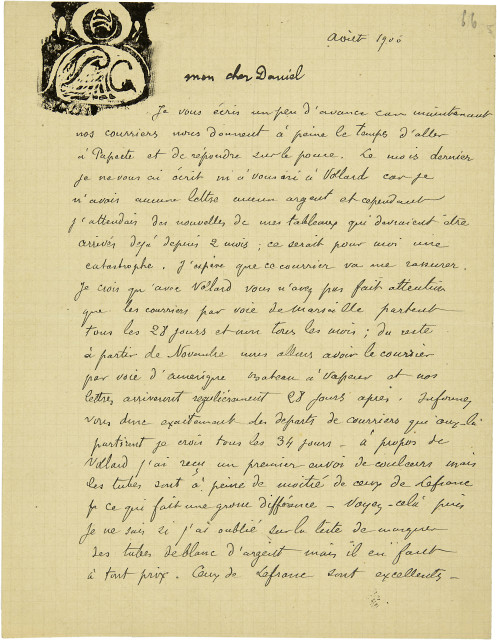 66
Août 1900
mon cher Daniel
Je vous écris un peu d'avance car maintenant
nos courriers nous donnent à peine le temps d'aller
à Papeete et de répondre sur le pouce. Le mois dernier
je ne vous ai écrit ni à vous ni à Vollard car je
n'avais aucune lettre aucun argent et cependant
j'attendais des nouvelles de mes tableaux qui devraient être
arrivés déjà depuis 2 mois ; ce serait pour moi une
catastrophe. J'espère que ce courrier va me rassurer.
Je crois qu'avec Vollard vous n'avez pas fait attention
que les courriers par voie de Marseille partent
tous les 28 jours et non tous les mois ; du reste
à partir de Novembre nous allons avoir le courrier
par voie d'amérique bateau à vapeur et nos
lettres arriveront régulièrement 28 jours après. Informez
vous donc exactement des départs de courriers qui
partiront je crois tous les 34 jours - à propos de
Vollard j'ai reçu un premier envoi de couleurs mais
les tubes sont à peine de moitié de ceux de Lefranc
ce qui fait une grosse différence - Voyez cela puis
Je ne sais si j'ai oublié sur la liste de marquer
des tubes de blanc d'argent mais il en faut
à tout prix. Ceux de Lefranc sont excellents -